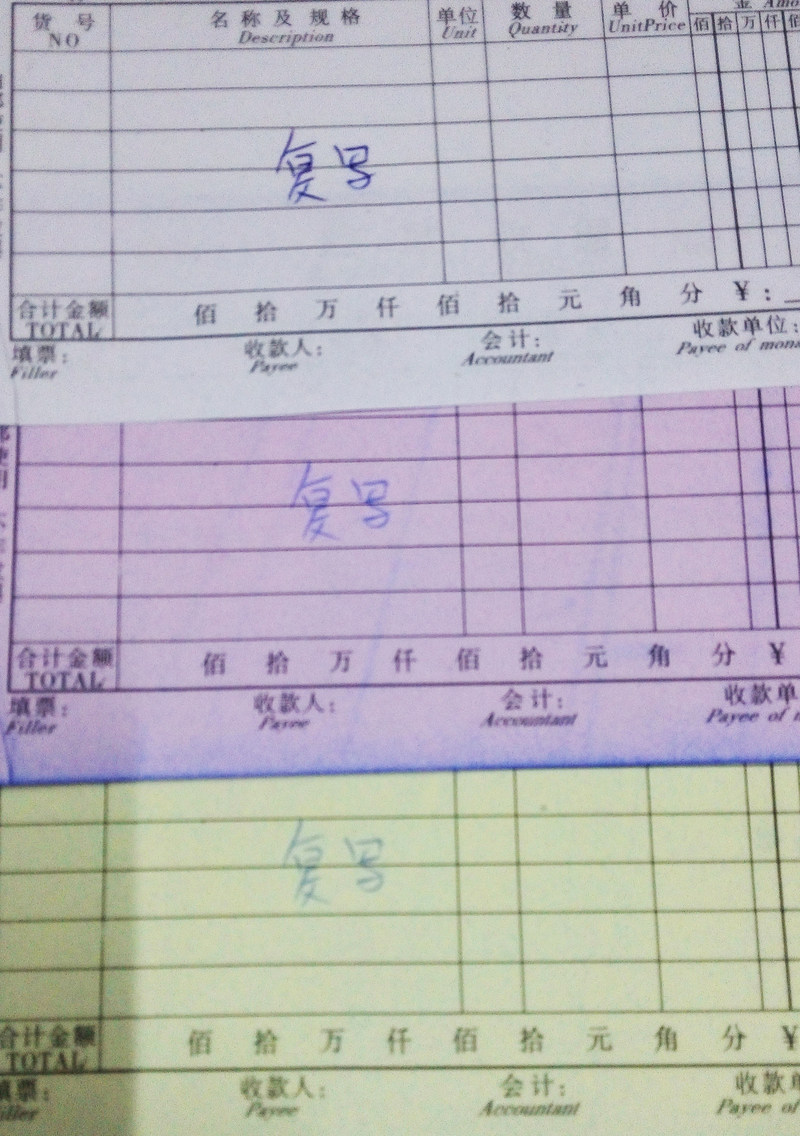 货 号 名 称 及 规 格 单位 数 量 单 价
NO Description Unit Quantity UnitPrice 佰 拾 万 仟 佰
复写
合计金额 佰 拾 万 仟 佰 拾 元 角 分 ¥:
TOTAL
填票: 收款人: 会计: 收款单位:
Filler Payee Accountant Payee of
复写
合计金额 佰 拾 万 仟 佰 拾 元 角 分 ¥
TOTAL
填票: 收款人: 会计: 收款单
Filler Payee Accountant Payee of
复写
合计金额 佰 拾 万 仟 佰 拾 元 角 分 ¥
TOTAL
填票: 收款人: 会计: 收款单
Filler Payee Accountant Payee of